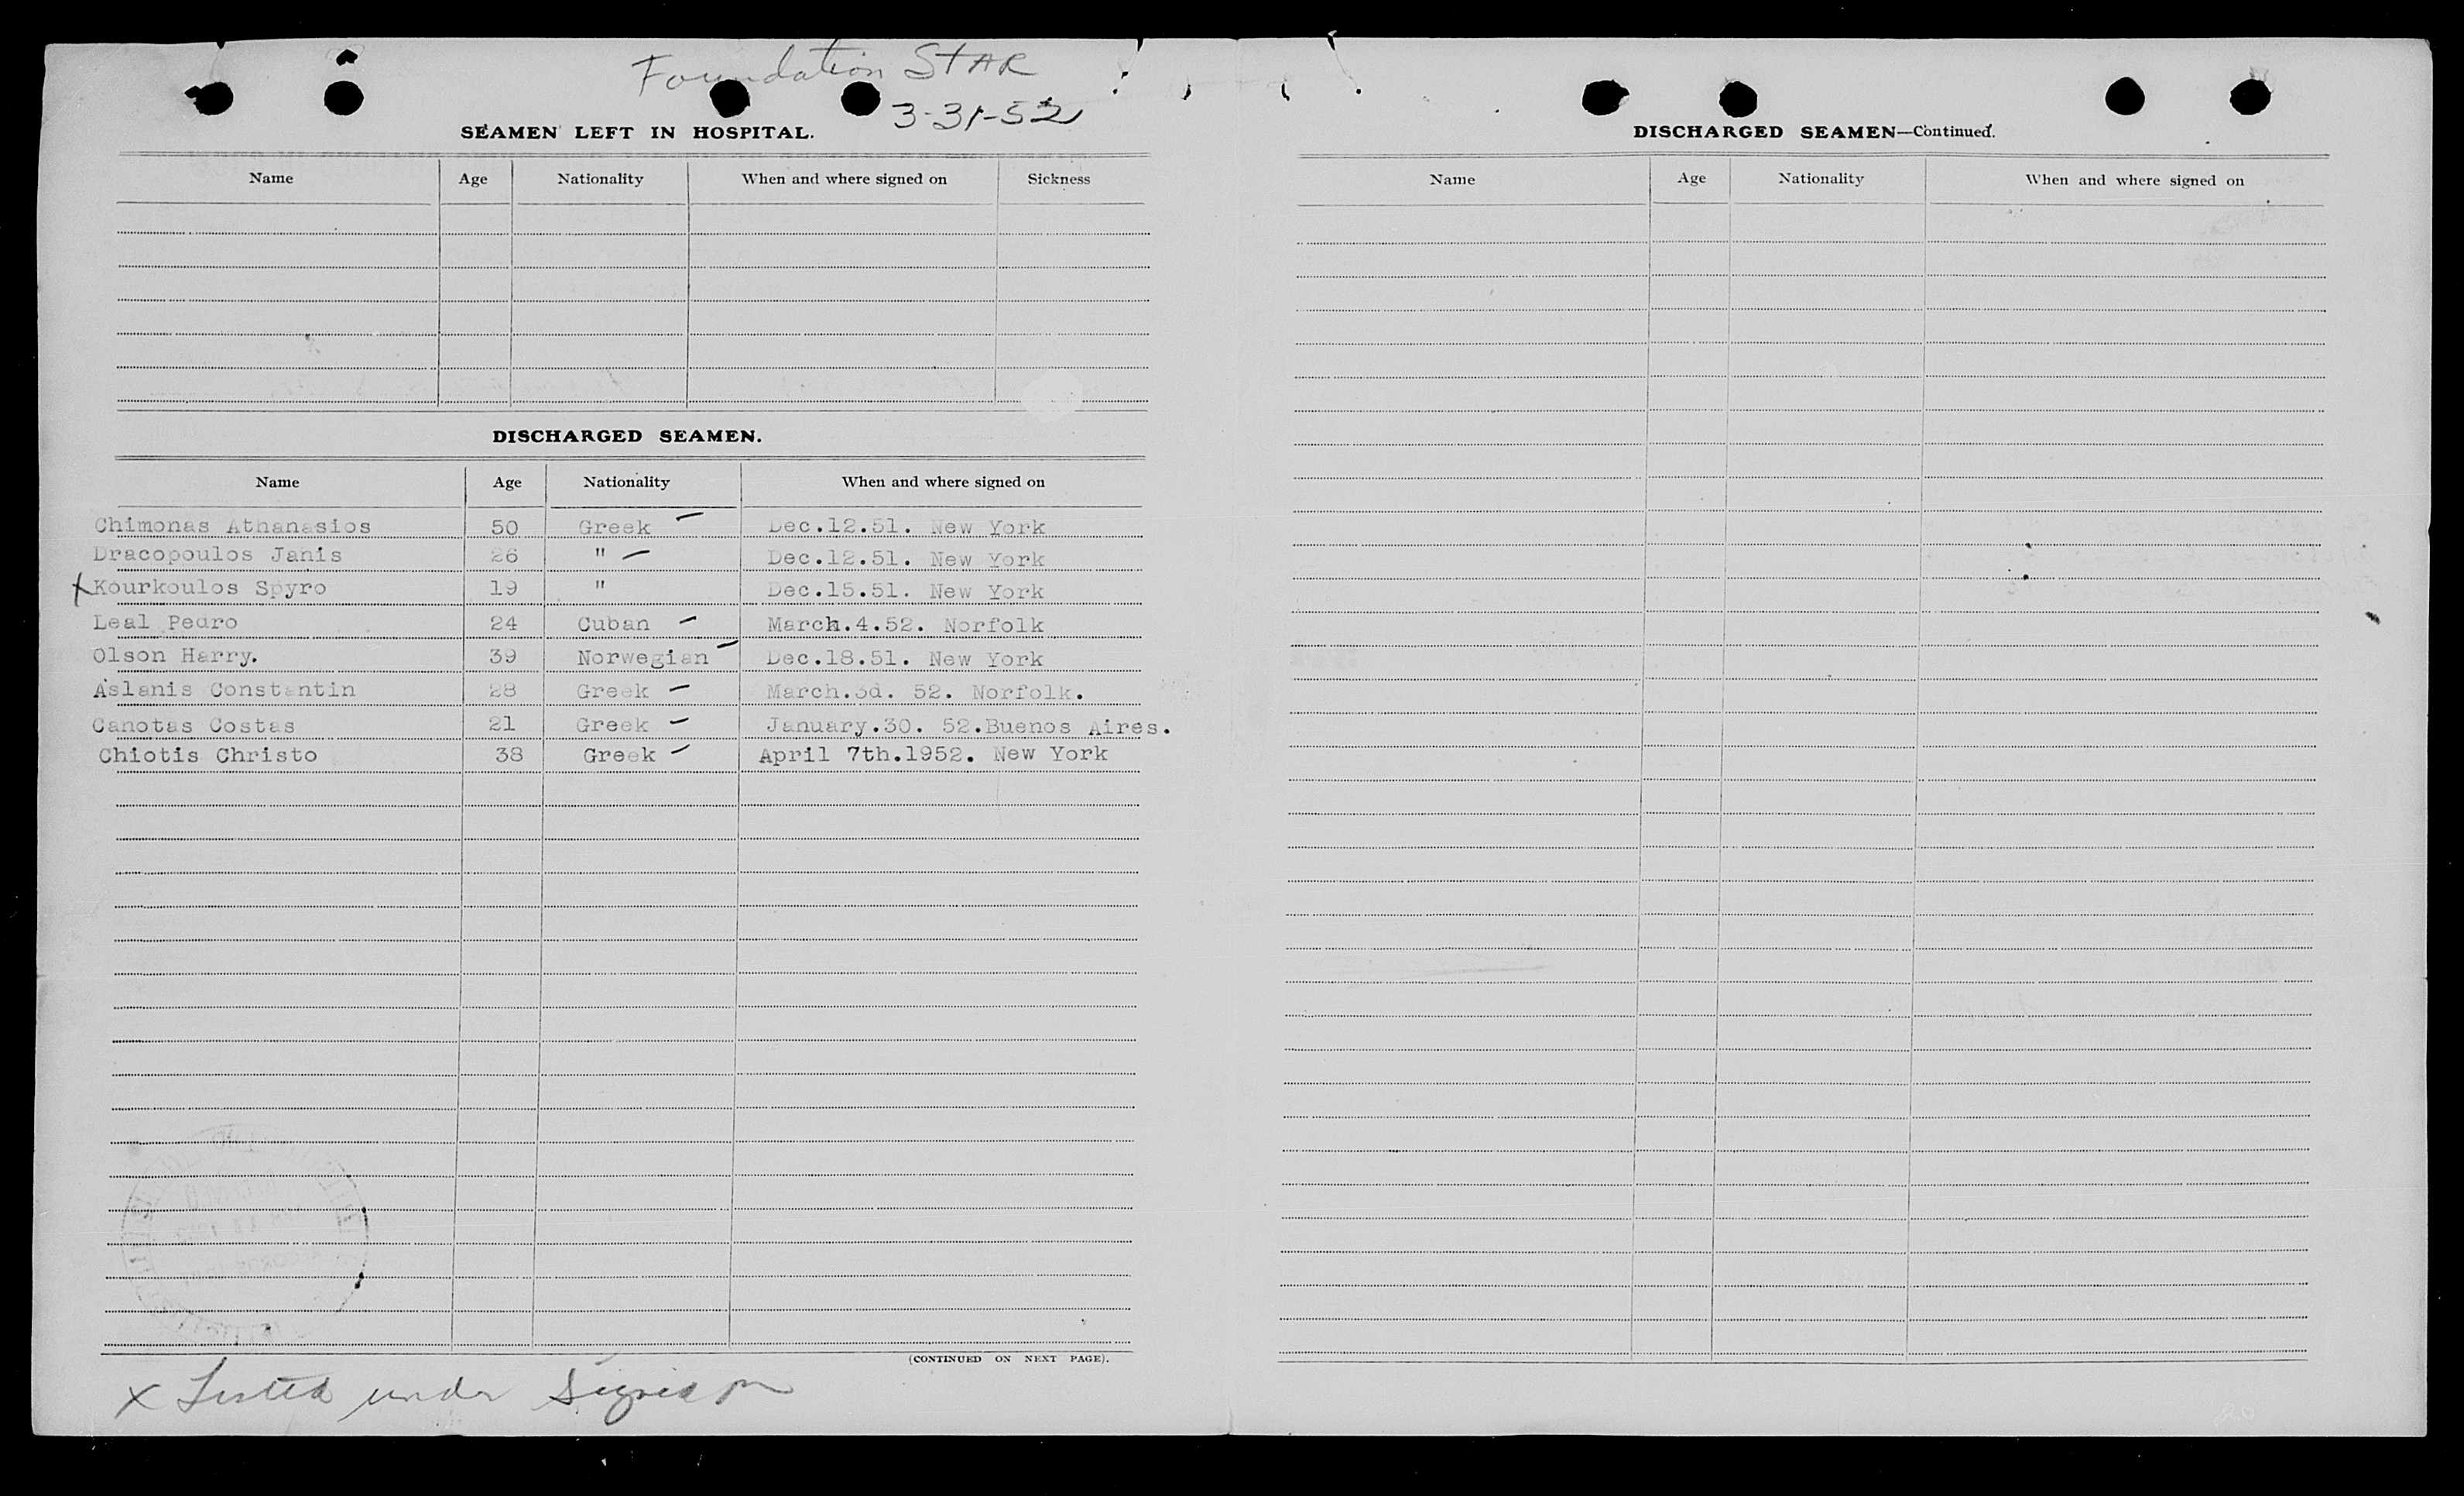 Foundation STAR
3-31-52
SEAMEN LEFT IN HOSPITAL.
Name Age Nationality When and where signed on Sickness
DISCHARGED SEAMEN.
Name Age Nationality When and where signed on
Chimonas Athanasios 50 Greek — Dec.12.51. New York
Dracopoulos Janis 26 " — Dec.12.51. New York
x Kourkoulos Spyro 19 " Dec.15.51. New York
Leal Pedro 24 Cuban — March.4.52. Norfolk
Olson Harry. 39 Norwegian — Dec.18.51. New York
Aslanis Constantin 28 Greek — March.3d. 52. Norfolk.
Canotas Costas 21 Greek — January.30. 52.Buenos Aires.
Chiotis Christo 38 Greek — April 7th.1952. New York
(CONTINUED ON NEXT PAGE).
x Listed under Signed on
DISCHARGED SEAMEN—Continued.
Name Age Nationality When and where signed on